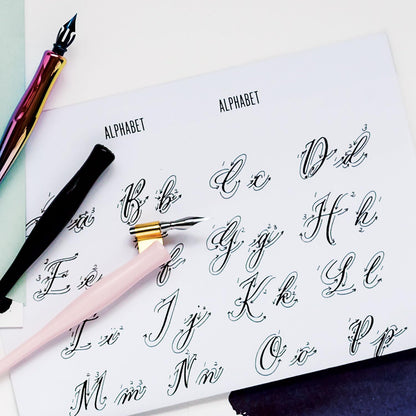 ALPHABET ALPHABET
a B b C c D d
E e f G g H h
I i J j K k L l
M m N n O o P p